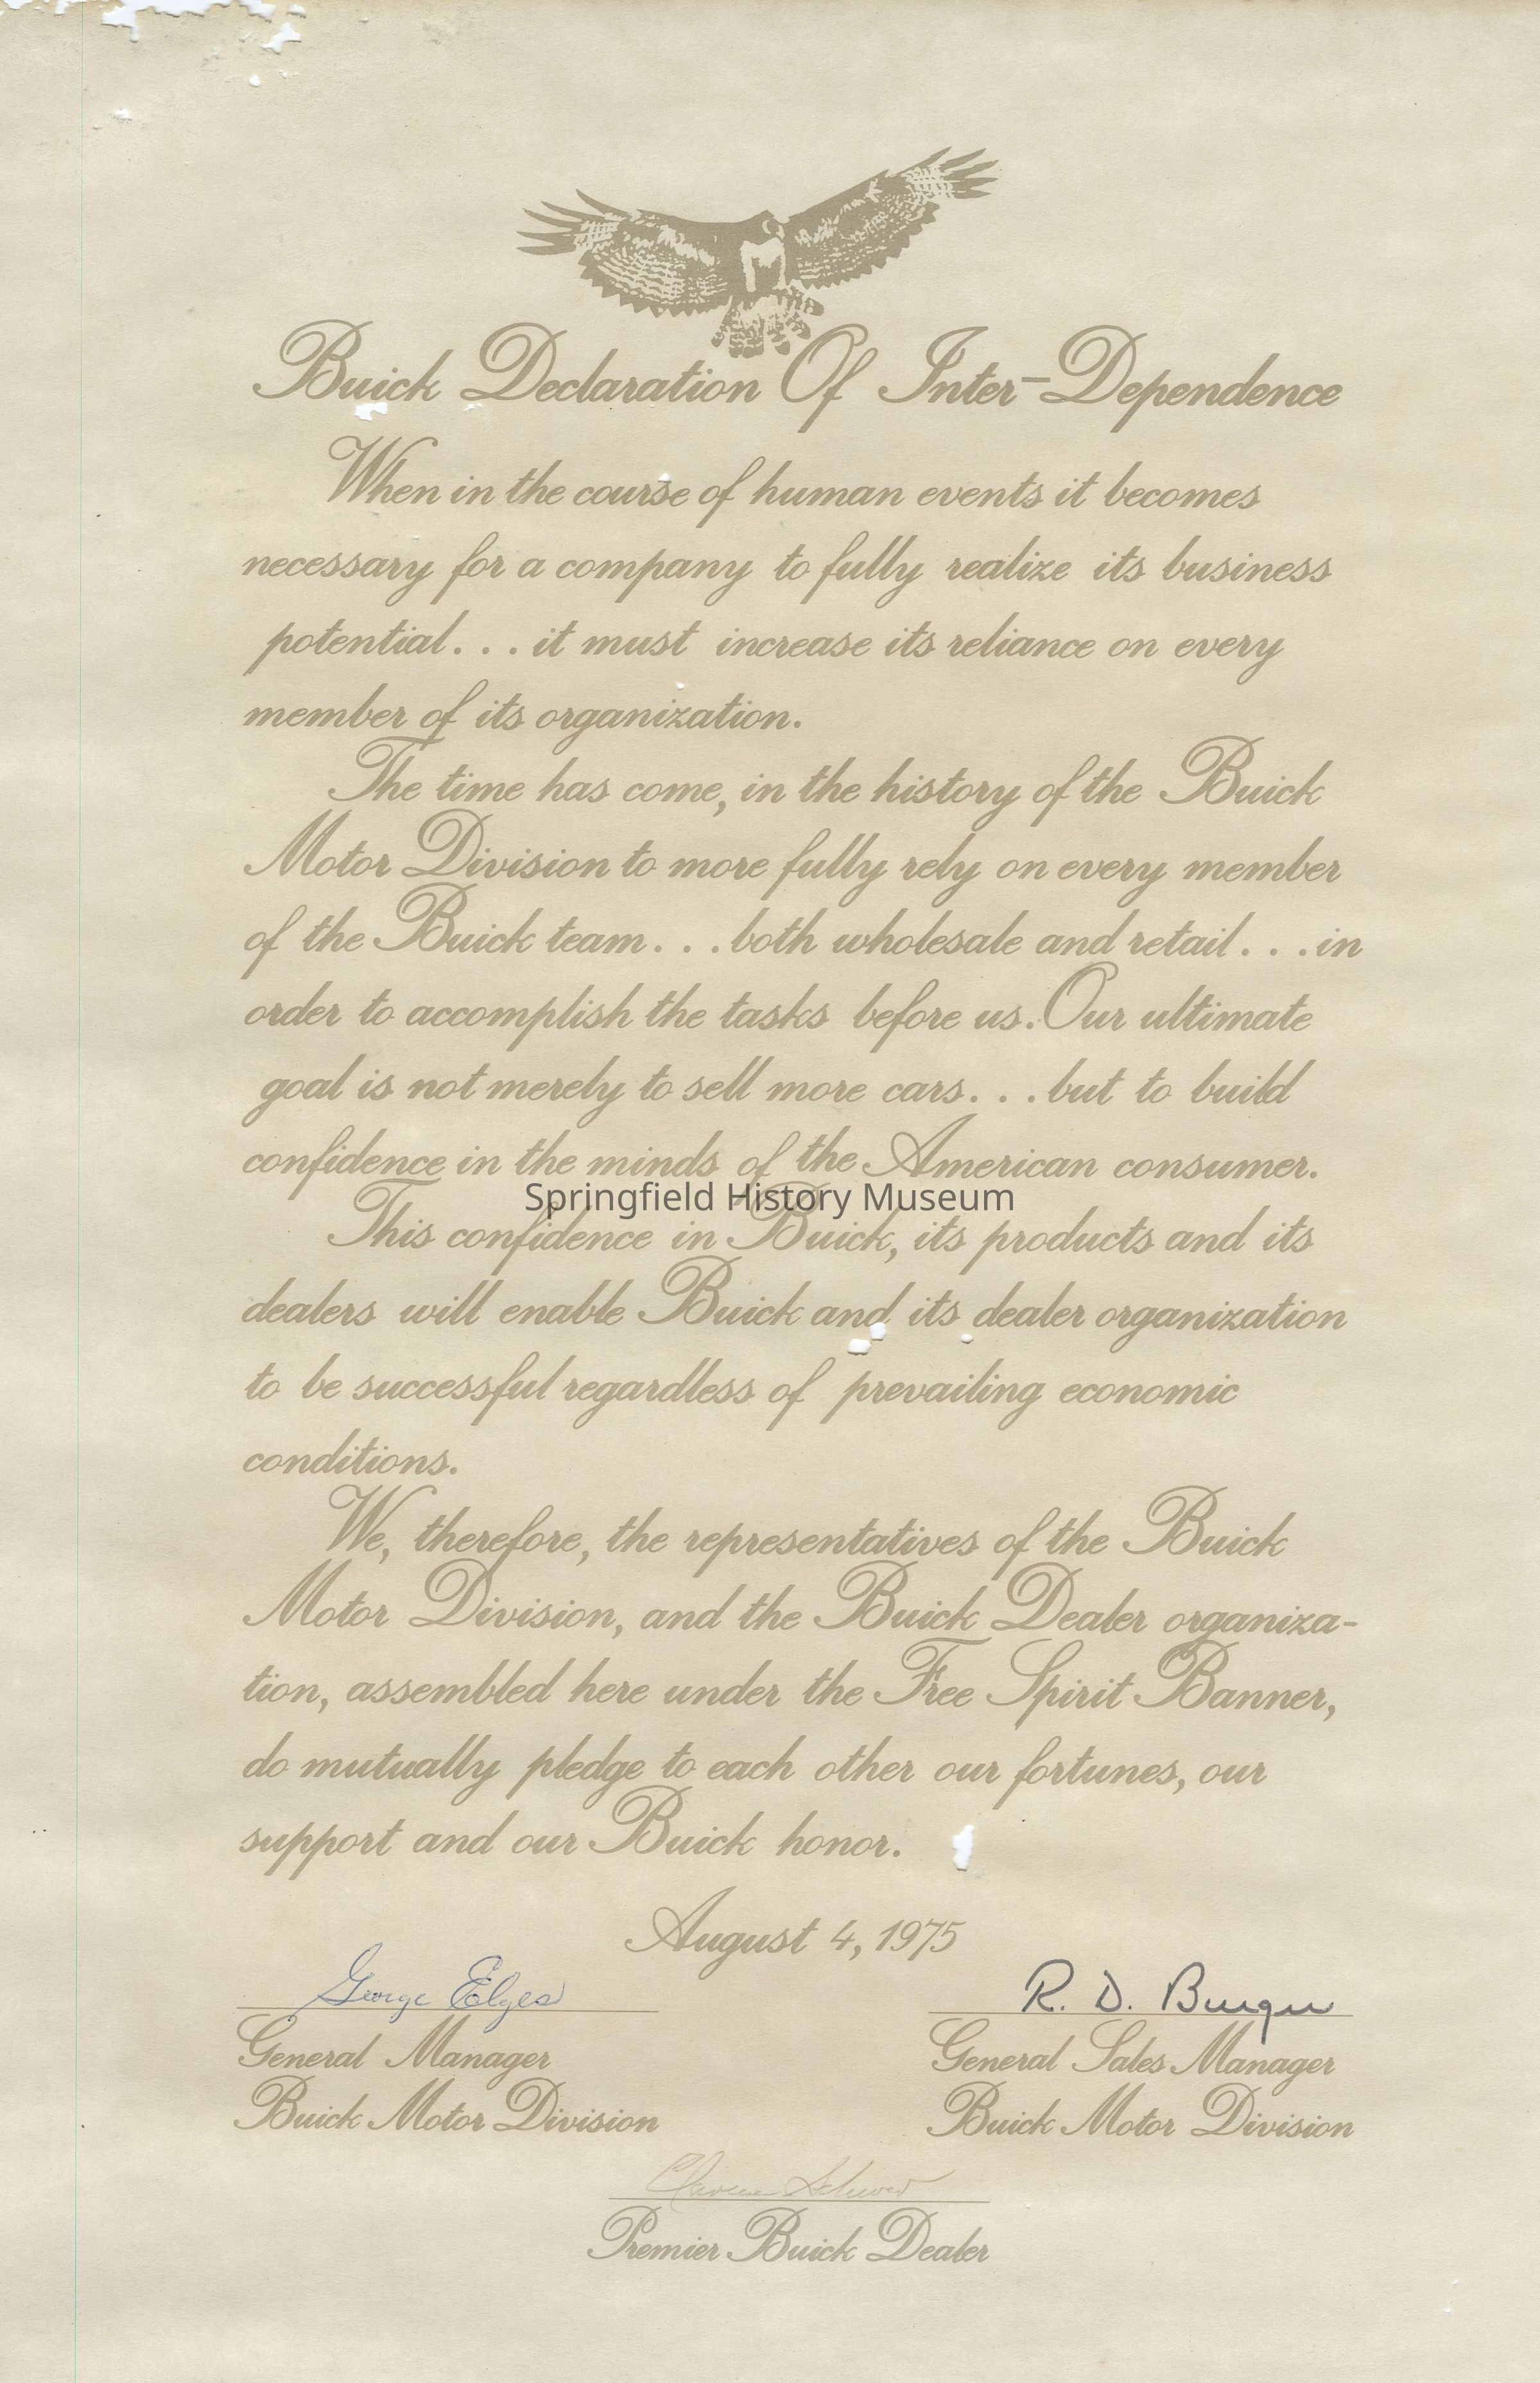 Buick Declaration Of Inter-Dependence
When in the course of human events it becomes
necessary for a company to fully realize its business
potential. . . it must increase its reliance on every
member of its organization.
The time has come, in the history of the Buick
Motor Division to more fully rely on every member
of the Buick team. . . both wholesale and retail. . . in
order to accomplish the tasks before us. Our ultimate
goal is not merely to sell more cars. . . but to build
confidence in the minds of the American consumer.
Springfield History Museum
This confidence in Buick, its products and its
dealers will enable Buick and its dealer organization
to be successful regardless of prevailing economic
conditions.
We, therefore, the representatives of the Buick
Motor Division, and the Buick Dealer organiza-
tion, assembled here under the Free Spirit Banner,
do mutually pledge to each other our fortunes, our
support and our Buick honor.
August 4, 1975
George Elges
R. D. Burger
General Manager
General Sales Manager
Buick Motor Division
Buick Motor Division
Premier Buick Dealer